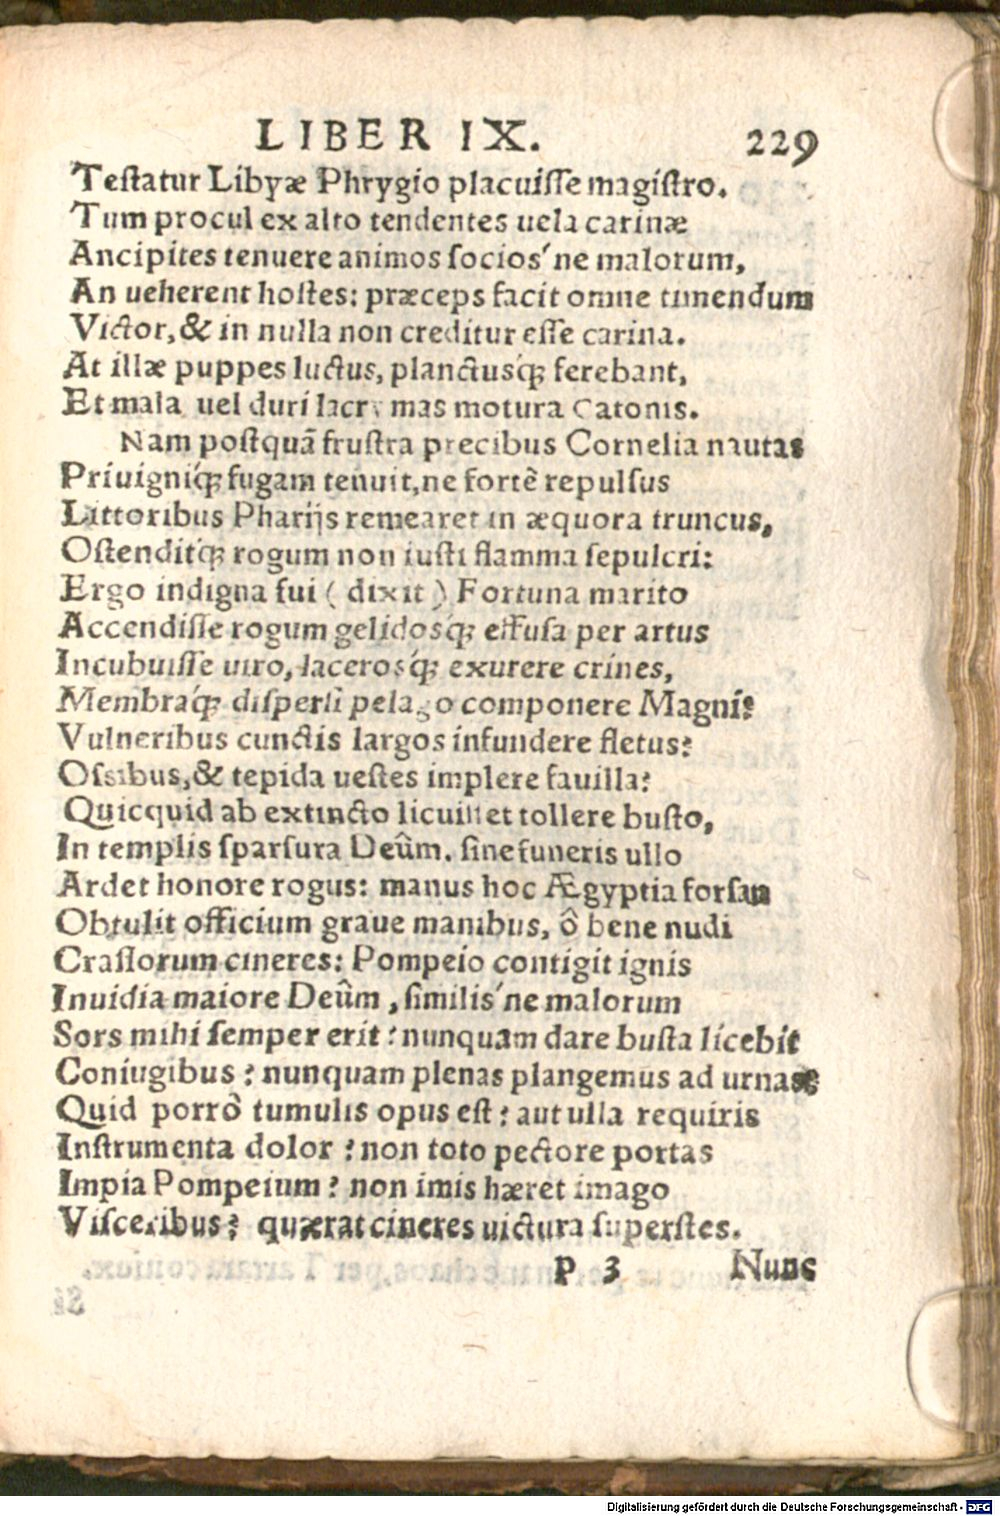 LIBER IX. 229
Testatur Libyæ Phrygio placuiſſe magiſtro.
Tum procul ex alto tendentes uela carinæ
Ancipites tenuere animos ſocios'ne malorum,
An ueherent hoſtes: præceps facit omne timendum
Victor, & in nulla non creditur eſſe carina.
At illæ puppes luctus, planctusq́; ferebant,
Et mala uel duri lacrymas motura Catonis.
Nam poſtquã fruſtra precibus Cornelia nautas
Priuigniq́; fugam tenuit, ne fortè repulſus
Littoribus Pharijs remearet in æquora truncus,
Oſtenditq́; rogum non iuſti flamma ſepulcri:
Ergo indigna fui ( dixit ) Fortuna marito
Accendiſſe rogum gelidosq́; effuſa per artus
Incubuiſſe uiro, lacerosq́; exurere crines,
Membraq́; diſperſi pelago componere Magni?
Vulneribus cunctis largos infundere fletus?
Oſsibus, & tepida ueſtes implere fauilla?
Quicquid ab extincto licuiſſet tollere buſto,
In templis ſparſura Deûm. ſine funeris ullo
Ardet honore rogus: manus hoc Ægyptia forſan
Obtulit officium graue manibus, ô bene nudi
Craſſorum cineres: Pompeio contigit ignis
Inuidia maiore Deûm, ſimilis'ne malorum
Sors mihi ſemper erit? nunquam dare buſta licebit
Coniugibus? nunquam plenas plangemus ad urnas?
Quid porrò tumulis opus eſt? aut ulla requiris
Inſtrumenta dolor? non toto pectore portas
Impia Pompeium? non imis hæret imago
Viſceribus? quærat cineres uictura ſuperſtes.
P 3 Nunc
Digitalisierung gefördert durch die Deutsche Forschungsgemeinschaft - DFG